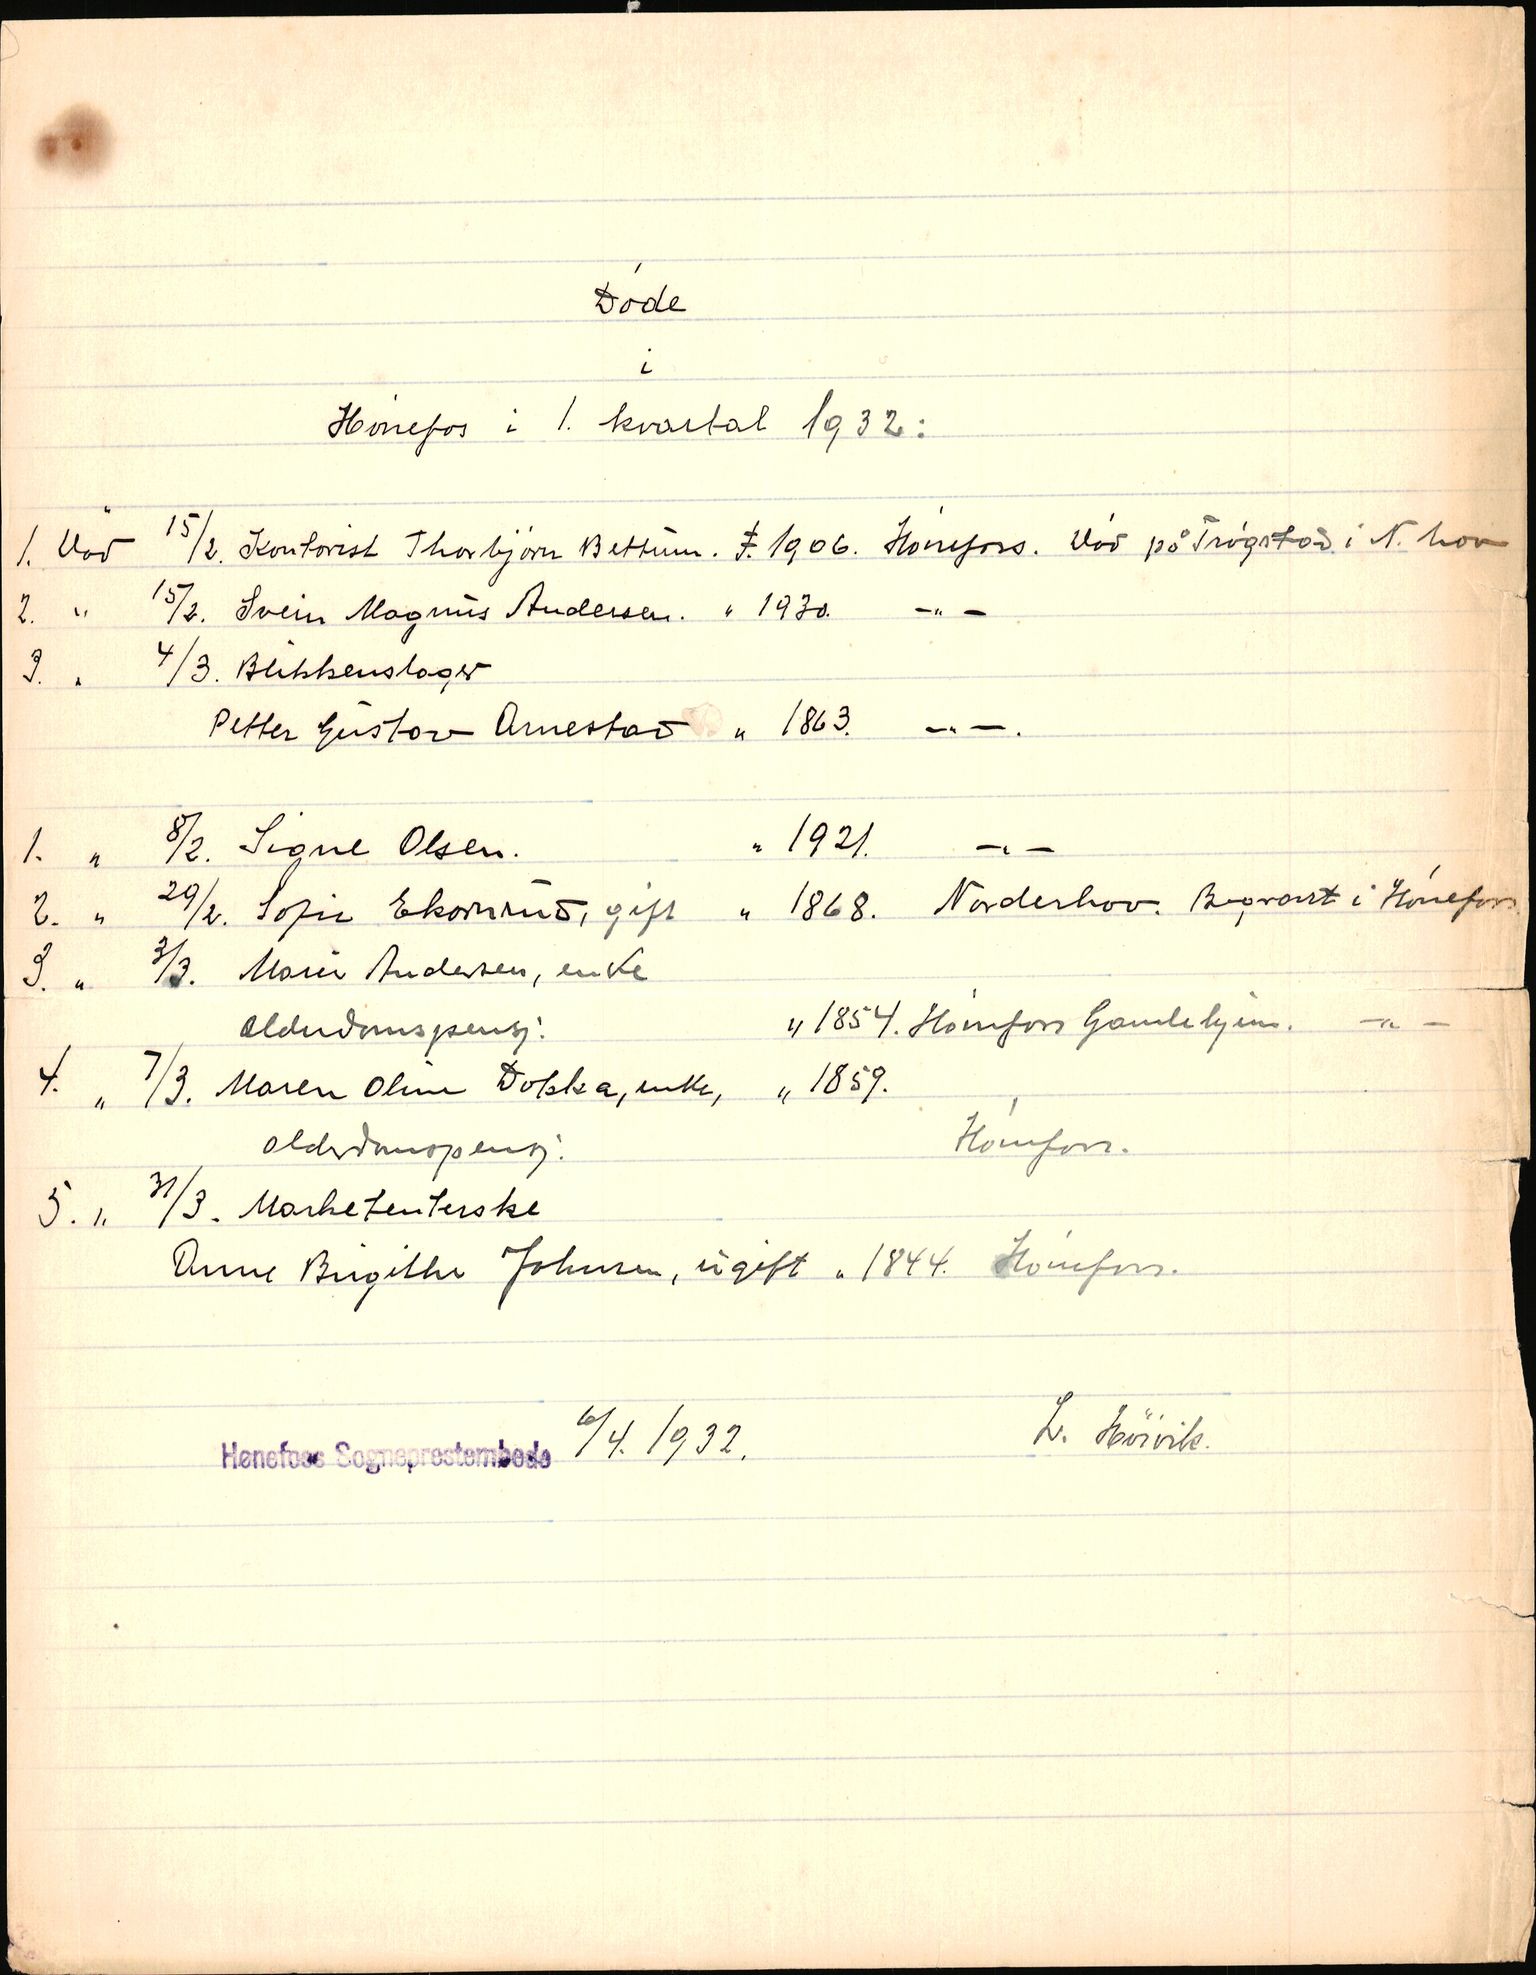 Døde
i
Hønefos i 1. kvartal 1932:
1. Død 15/2. Kontorist Thorbjørn Bettum. f. 1906. Hønefoss. Død på Trøgstad i N. hov
2. " 15/2. Svein Magnus Andersen. " 1930. -"-
3. " 4/3. Blikkenslager
Petter Gustav Arnestad " 1863. -"-.
1. " 8/2. Signe Olsen. " 1921. -"-
2. " 29/2. Sofie Ekornrud, gift " 1868. Norderhov. Begravet i Hønefoss
3. " 3/3. Marie Andersen, enke
alderdomspensj. " 1854. Hønefoss Gamlehjem. -"-
4. " 7/3. Maren Oline Dokka, enke, " 1859.
alderdomspensj. Hønefoss.
5. " 31/3. Marketenterske
Anne Birgithe Johnsen, ugift " 1844. Hønefoss.
Hønefoss Sogneprestembede 6/4. 1932. L. Høivik.